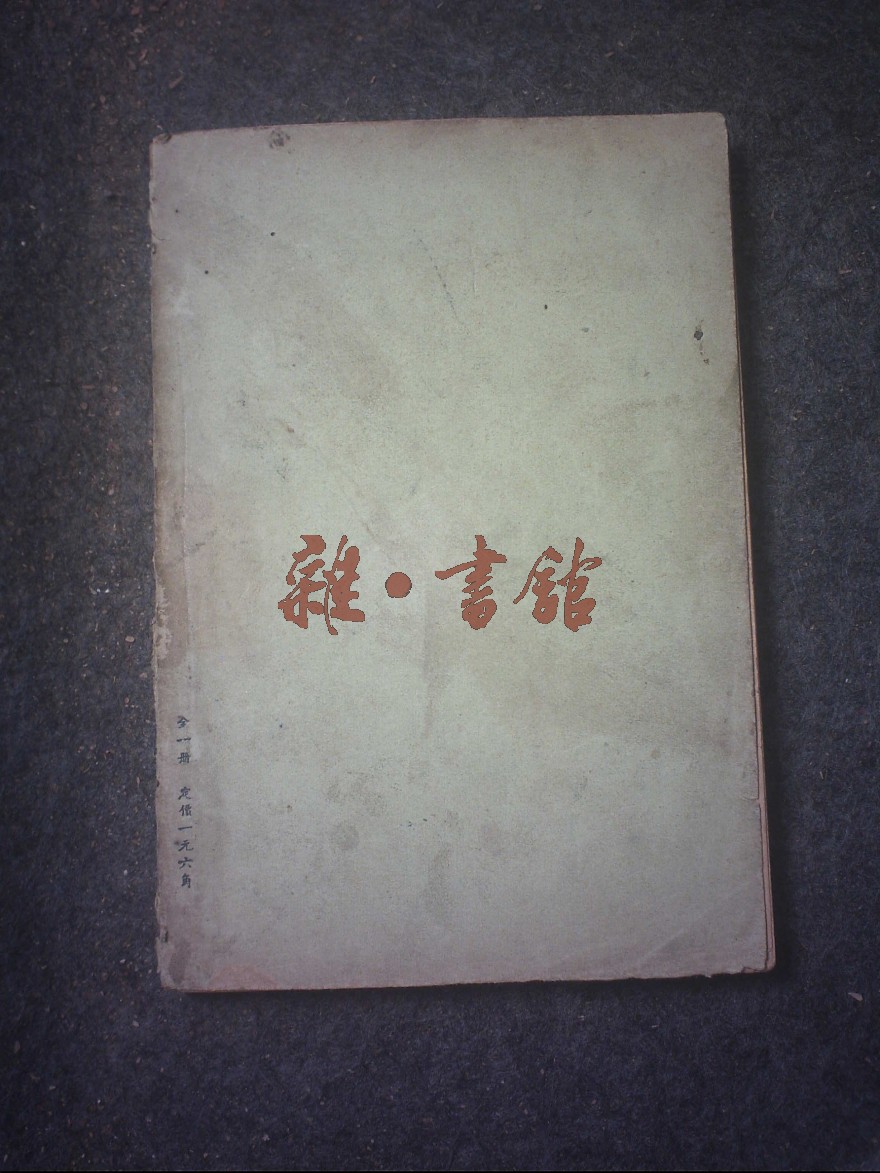 雜·書舘
全一册 定價一元六角